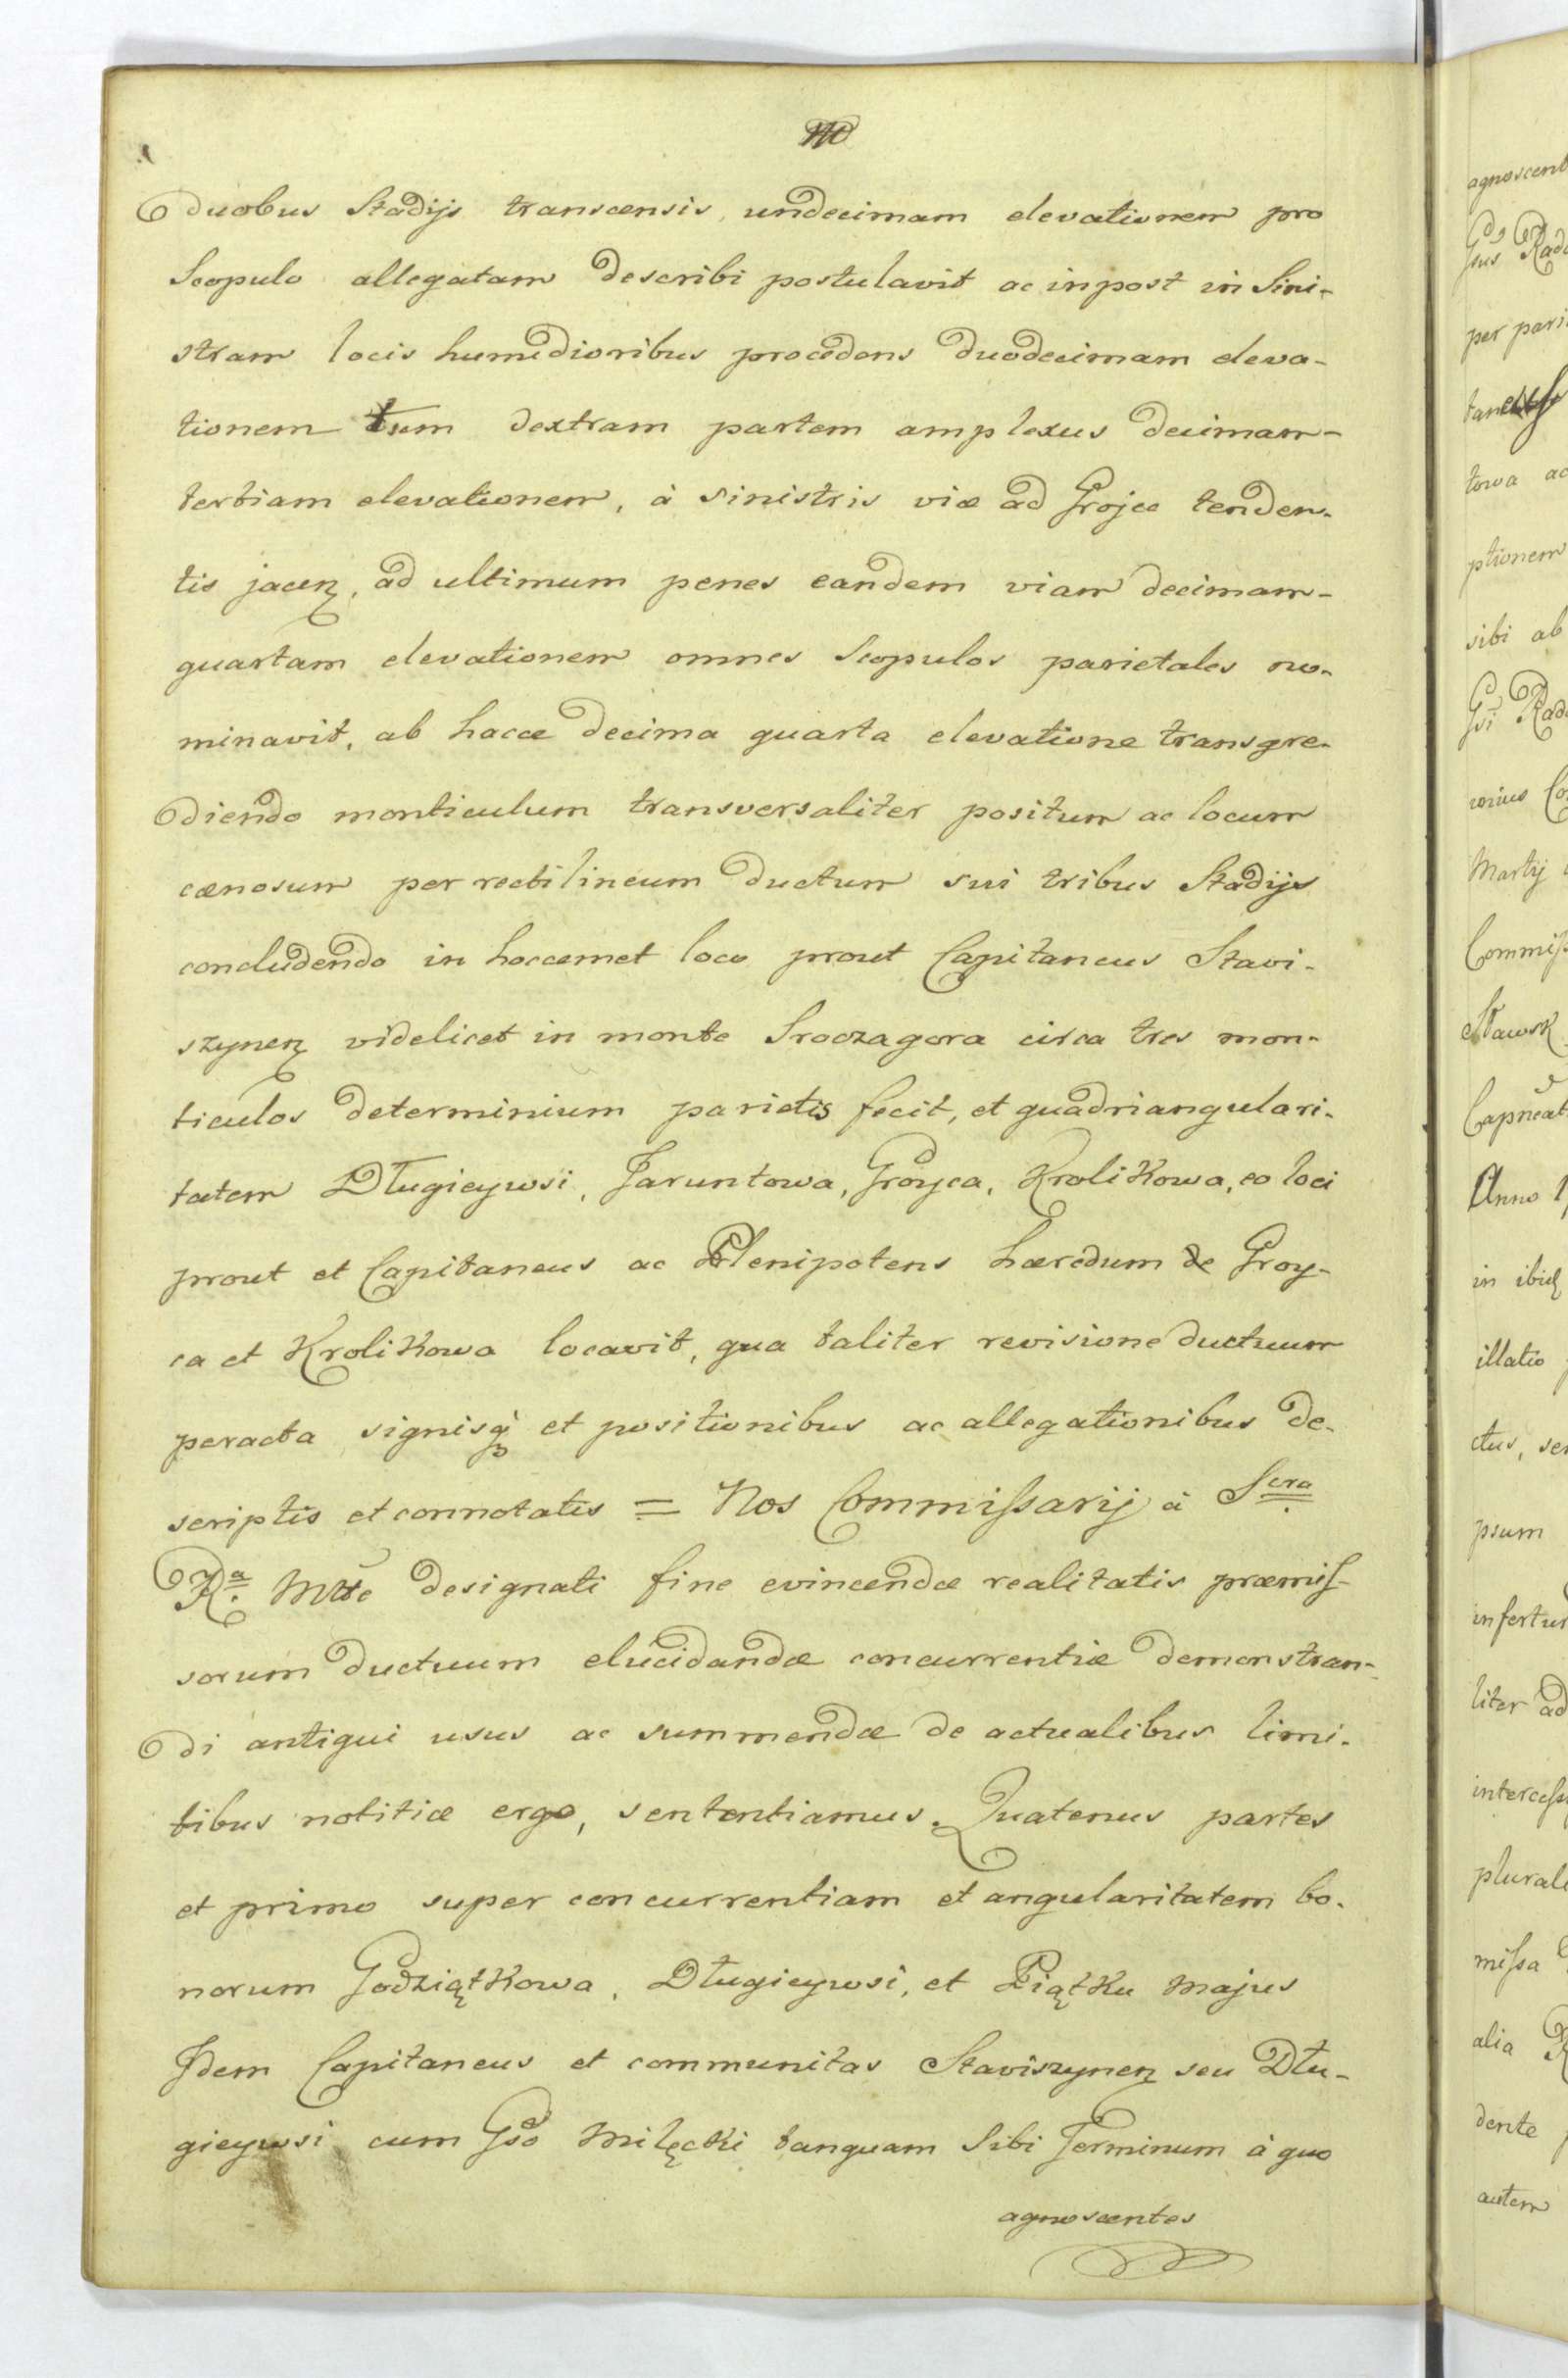 duobus Stadijs transcensis, undecimam elevationem pro
Scopulo allegatam describi postulavit ac inpost in Sini-
stram locis humidioribus procedens duodecimam eleva-
tionem tum dextram partem amplexus decimam-
tertiam elevationem, à sinistris viæ ad Grojec tenden-
tis jacen, ad ultimum penes eandem viam decimam-
quartam elevationem omnes Scopulos parietales no-
minavit, ab hacce decima quarta elevatione transgre-
diendo monticulum transversaliter positum ac locum
cænosum per rectilineum ductum sui tribus Stadijs
concludendo in hoccemet loco prout Capitaneus Stavi-
szynen videlicet in monte Sroczagora circa tres mon-
ticulos determinium parietis fecit, et quadriangulari-
tatem Długieywsi, Jaruntowa, Groyca, Krolikowa, eo loci
prout et Capitaneus ac Plenipotens hæredum de Groy-
ca et Krolikowa locavit, qua taliter revisione ductuum
peracta signisq et positionibus ac allegationibus de-
scriptis et connotatis = Nos Commissarij à Scra
Ra Mtte designati fine evincendæ realitatis præmis-
sorum ductuum elucidandæ concurrentiæ demonstran-
di antiqui usus ac summendæ de actualibus limi-
tibus notitiæ ergo, sententiamus. Quatenus partes
et primo super concurrentiam et angularitatem bo-
norum Godziątkowa, Długieywsi, et Piątku majus
Idem Capitaneus et communitas Staviszynen seu Dłu-
gieywsi cum Gso Milęcki tanquam Sibi Terminum à quo
agnoscentes
agnoscent
per pari
towa ac
ptionem
sibi ab
Martij
Commiss
Anno 1
illatio
ctus, ser
psum
infertur
liter ad
plurale
missa
alia
dente
autem